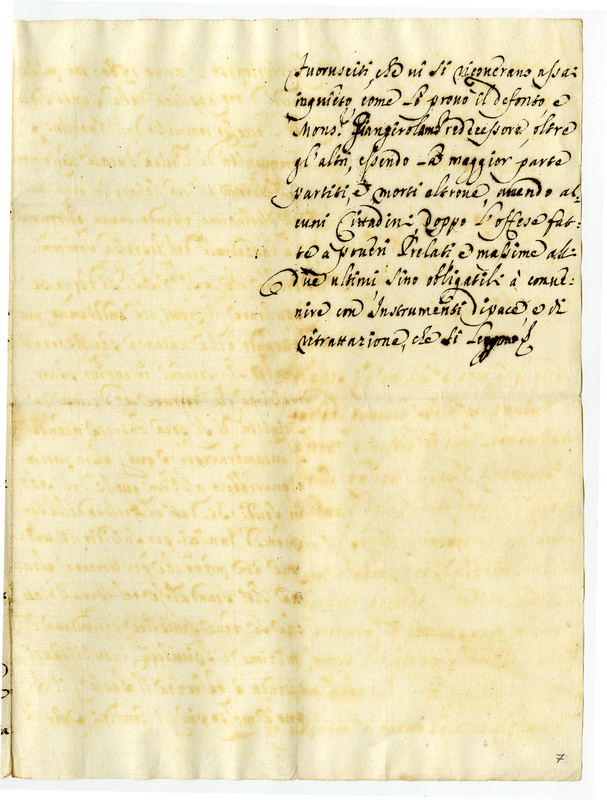 fuorusciti, che ui si ricouerano assai
inquieto, come lo prouò il defonto, e
Mons.r Giangirolamo predecessore, oltre
gl'altri, essendo la maggior parte
partiti, e morti altroue, auendo al-
cuni Cittadini, doppo l'offese fat-
te a proprij Prelati e massime alli
due ultimi sino obligatili à conue-
nire con Instrumenti di pace, e di
ritrattazione, che si leggono
7